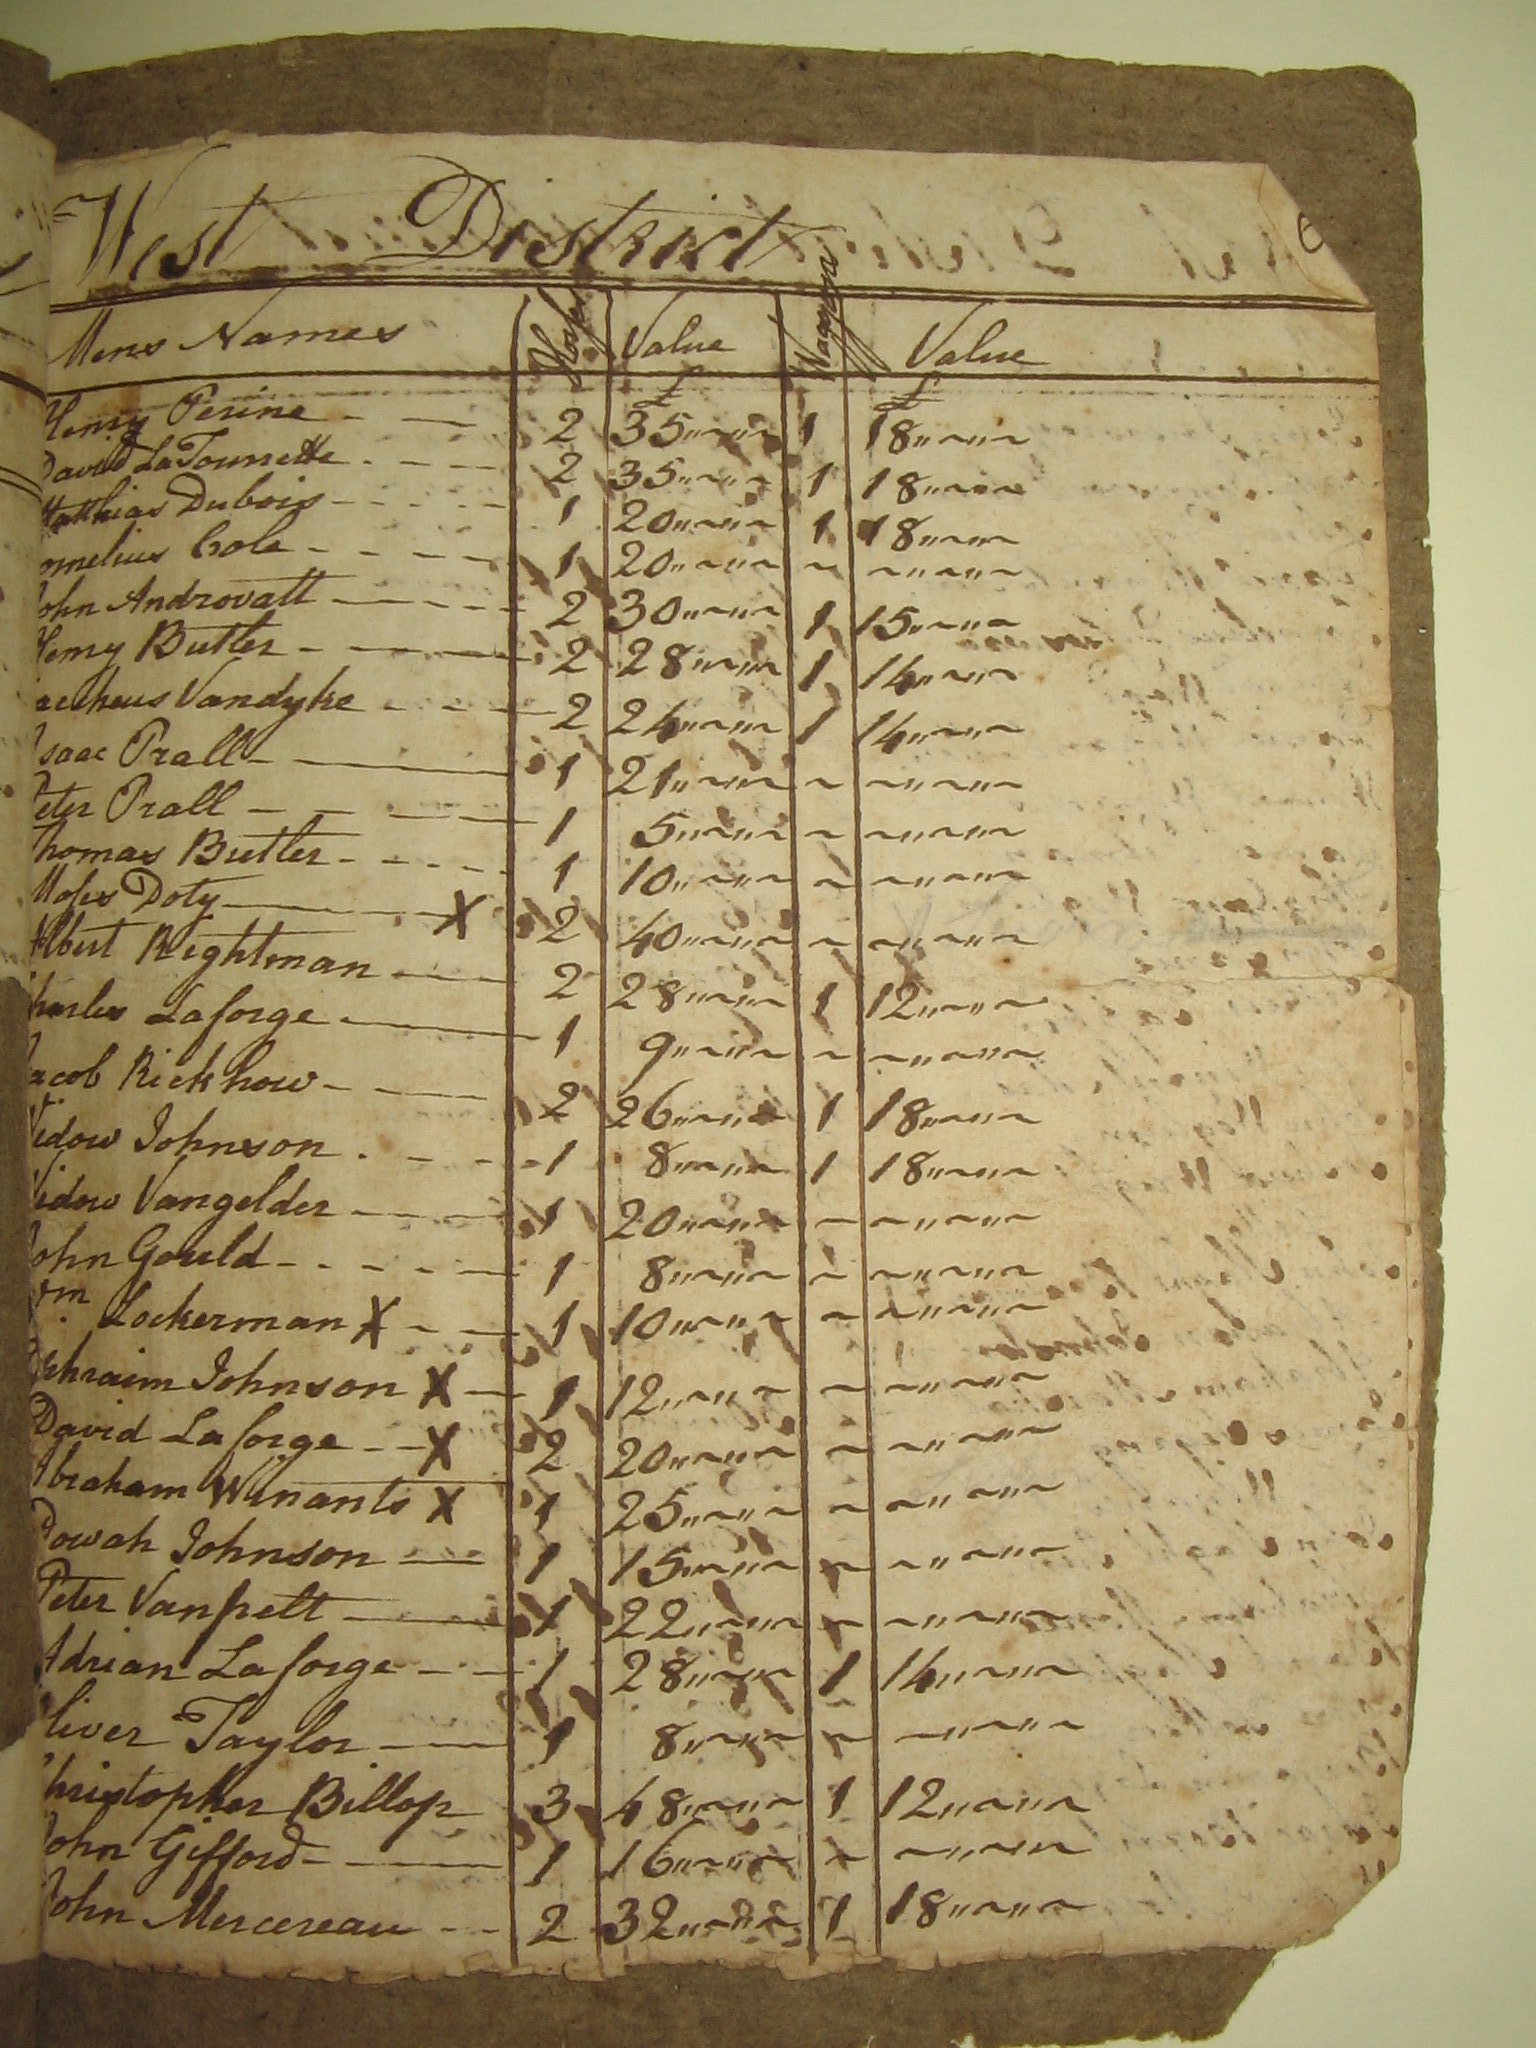 West District
Mens Names Horses Value Waggons Value
£ £
Henry Perine 2 35 1 18
David LaTourette 2 35 1 18
Matthias Dubois 1 20 1 18
ornelius Cole 1 20
John Androvatt 2 30 1 15
Henry Butler 2 28 1 14
acheus Vandyke 2 24 1 14
Isaac Prall 1 21
Peter Prall 1 5
Thomas Butler 1 10
Moses Doty X 2 40
Albert Rightman 2 28 1 12
Charles Laforge 1 9
Jacob Rickhow 2 26 1 18
Widow Johnson 1 8 1 18
Widow Vangelder 1 20
John Gould 1 8
Wm Lockerman X 1 10
Ephraim Johnson X 1 12
David Laforge X 2 20
Abraham Winants X 1 25
Dowah Johnson 1 15
Peter Vanpelt 1 22
Adrian Laforge 1 28 1 14
liver Taylor 1 8
Christopher Billop 3 48 1 12
John Gifford 1 16
John Mercereau 2 32 1 18